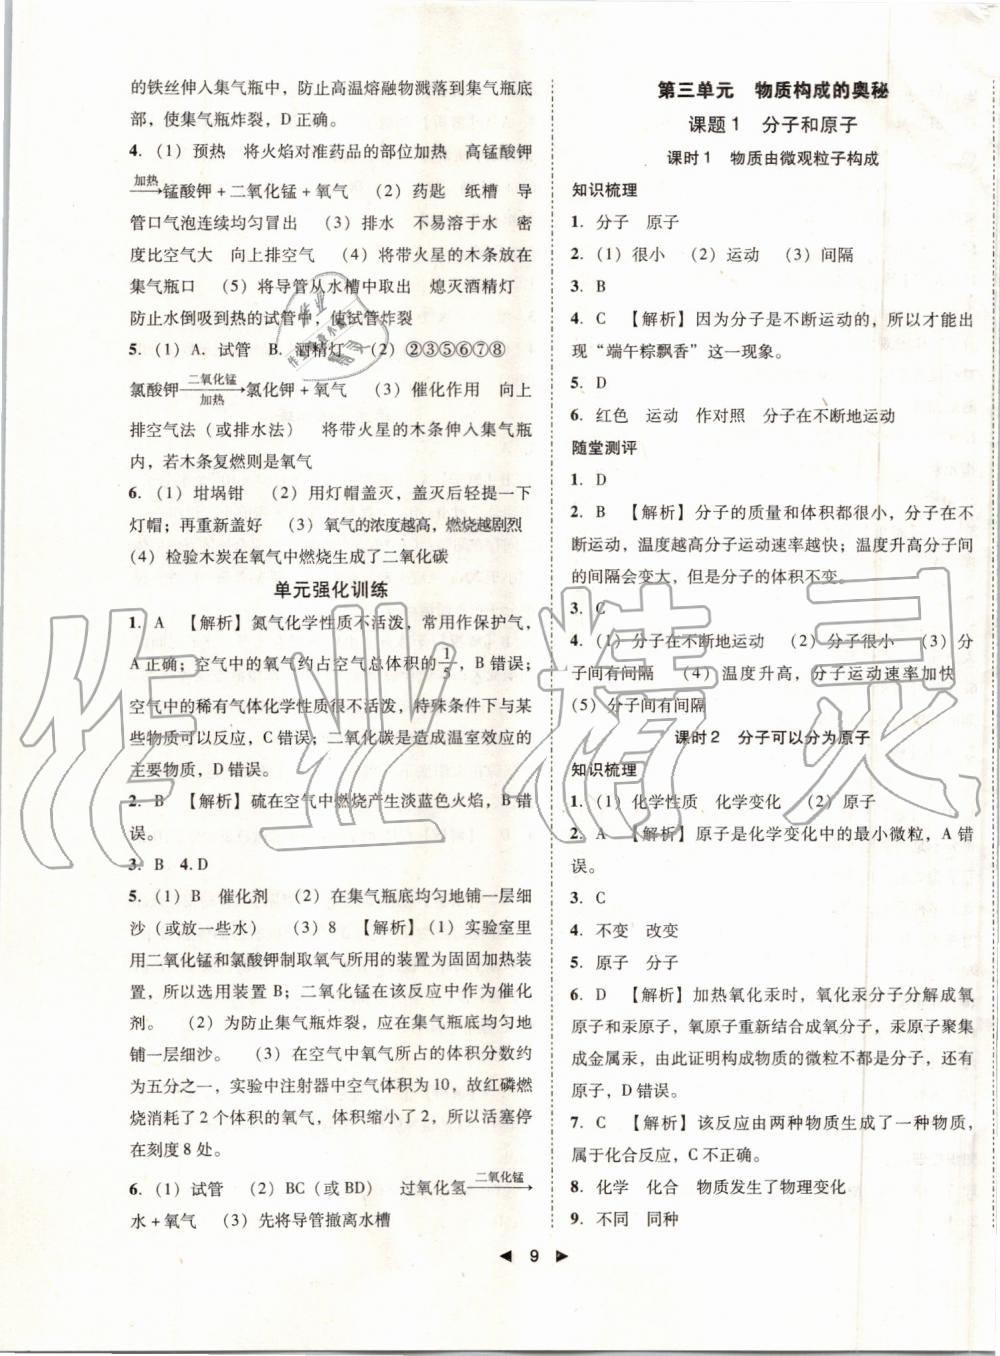 的铁丝伸入集气瓶中，防止高温熔融物溅落到集气瓶底
部，使集气瓶炸裂，D正确。
4.（1）预热　将火焰对准药品的部位加热　高锰酸钾
加热
锰酸钾＋二氧化锰＋氧气　（2）药匙　纸槽　导
管口气泡连续均匀冒出　（3）排水　不易溶于水　密
度比空气大　向上排空气　（4）将带火星的木条放在
集气瓶口　（5）将导管从水槽中取出　熄灭酒精灯
防止水倒吸到热的试管中，使试管炸裂
5.（1）A. 试管　B. 酒精灯　（2）②③⑤⑥⑦⑧
氯酸钾 二氧化锰 加热 氯化钾＋氧气　（3）催化作用　向上
排空气法（或排水法）　将带火星的木条伸入集气瓶
内，若木条复燃则是氧气
6.（1）坩埚钳　（2）用灯帽盖灭，盖灭后轻提一下
灯帽；再重新盖好　（3）氧气的浓度越高，燃烧越剧烈
（4）检验木炭在氧气中燃烧生成了二氧化碳
单元强化训练
1. A　【解析】氮气化学性质不活泼，常用作保护气，
A正确；空气中的氧气约占空气总体积的1/5，B错误；
空气中的稀有气体化学性质很不活泼，特殊条件下与某
些物质可以反应，C错误；二氧化碳是造成温室效应的
主要物质，D错误。
2. B　【解析】硫在空气中燃烧产生淡蓝色火焰，B错
误。
3. B　4. D
5.（1）B　催化剂　（2）在集气瓶底均匀地铺一层细
沙（或放一些水）　（3）8　【解析】（1）实验室里
用二氧化锰和氯酸钾制取氧气所用的装置为固固加热装
置，所以选用装置B；二氧化锰在该反应中作为催化
剂。　（2）为防止集气瓶炸裂，应在集气瓶底均匀地
铺一层细沙。　（3）在空气中氧气所占的体积分数约
为五分之一，实验中注射器中空气体积为10，故红磷燃
烧消耗了2个体积的氧气，体积缩小了2，所以活塞停
在刻度8处。
6.（1）试管　（2）BC（或BD）　过氧化氢 二氧化锰
水＋氧气　（3）先将导管撤离水槽
第三单元　物质构成的奥秘
课题1　分子和原子
课时1　物质由微观粒子构成
知识梳理
1. 分子　原子
2.（1）很小　（2）运动　（3）间隔
3. B
4. C　【解析】因为分子是不断运动的，所以才能出
现“端午粽飘香”这一现象。
5. D
6. 红色　运动　作对照　分子在不断地运动
随堂测评
1. D
2. B　【解析】分子的质量和体积都很小，分子在不
断运动，温度越高分子运动速率越快；温度升高分子间
的间隔会变大，但是分子的体积不变。
3. C
4.（1）分子在不断地运动　（2）分子很小　（3）分
子间有间隔　（4）温度升高，分子运动速率加快
（5）分子间有间隔
课时2　分子可以分为原子
知识梳理
1.（1）化学性质　化学变化　（2）原子
2. A　【解析】原子是化学变化中的最小微粒，A错
误。
3. C
4. 不变　改变
5. 原子　分子
6. D　【解析】加热氧化汞时，氧化汞分子分解成氧
原子和汞原子，氧原子重新结合成氧分子，汞原子聚集
成金属汞，由此证明构成物质的微粒不都是分子，还有
原子，D错误。
7. C　【解析】该反应由两种物质生成了一种物质，
属于化合反应，C不正确。
8. 化学　化合　物质发生了物理变化
9. 不同　同种
9
作业精灵